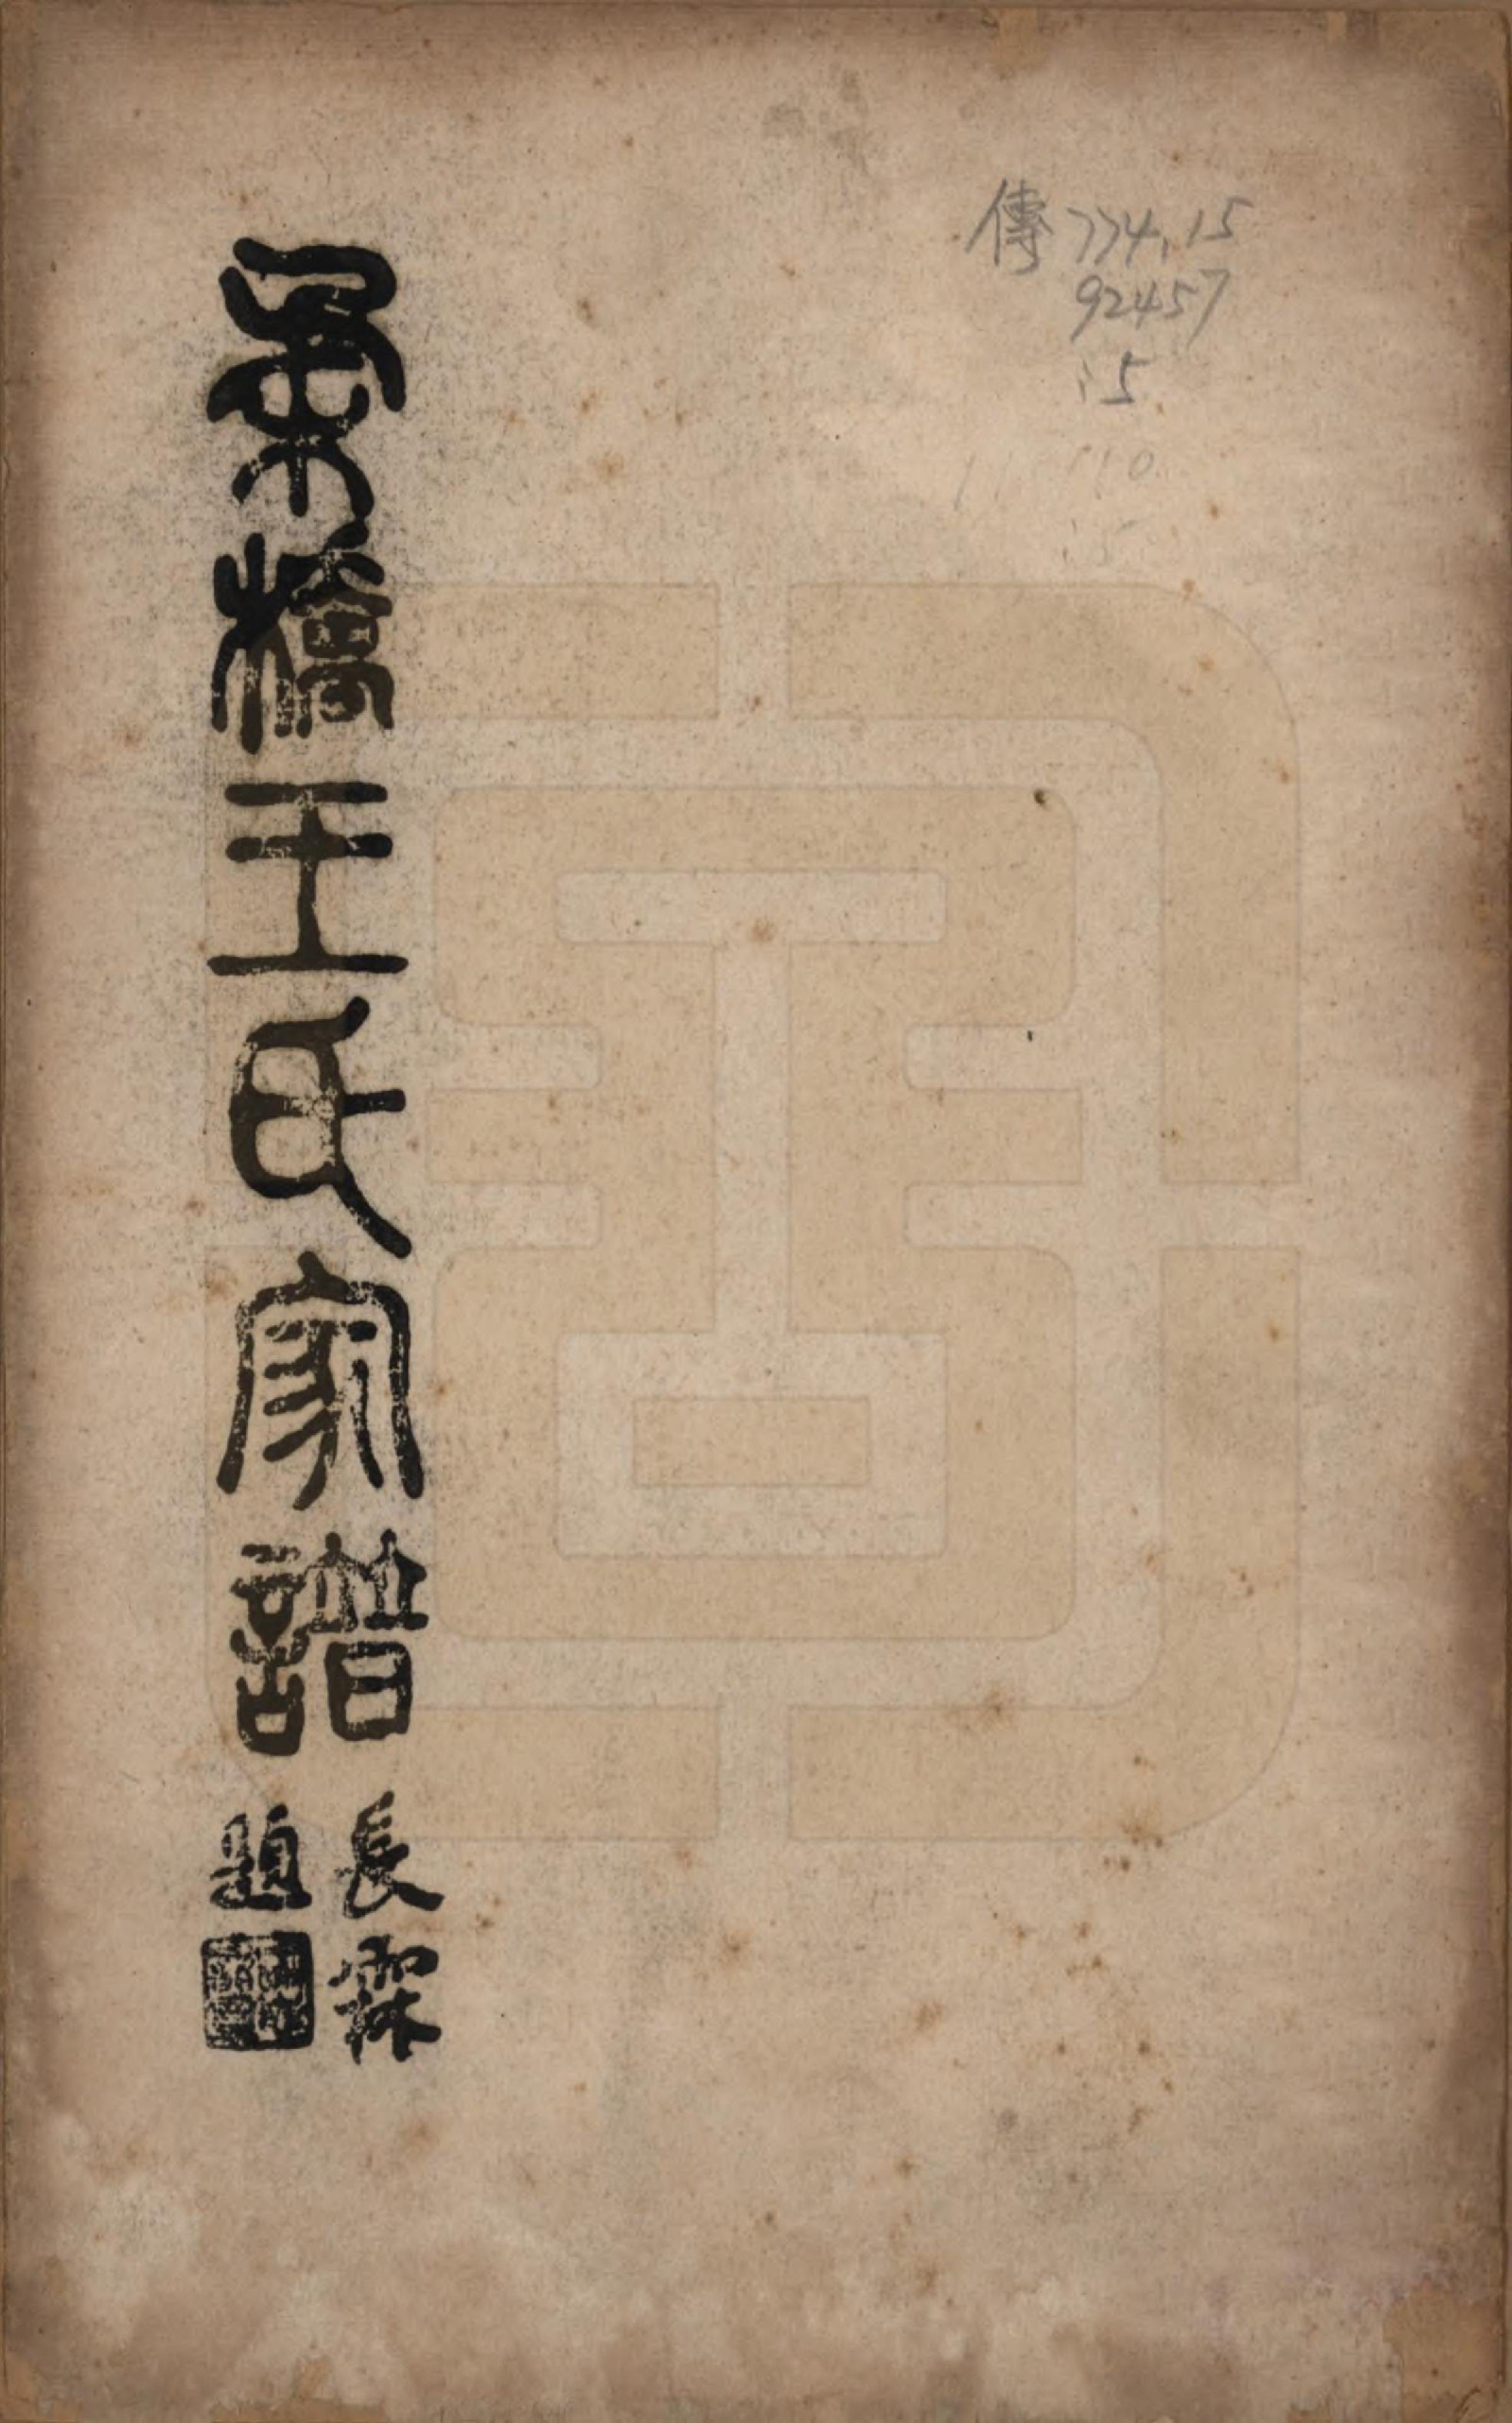 傳 774.15
92457
:5
柔橋王氏家譜
長霖
題